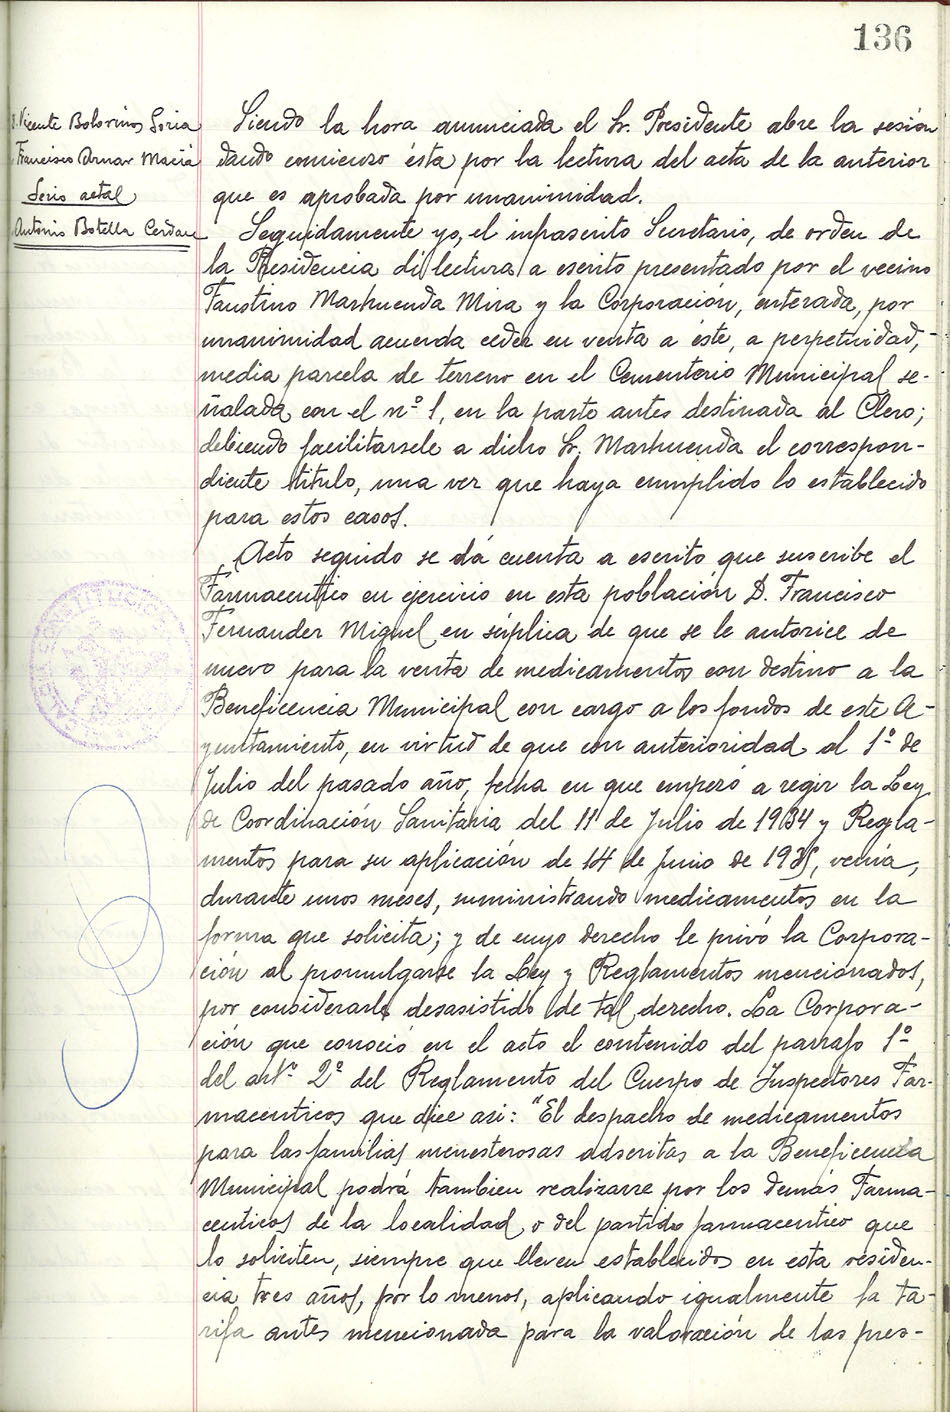 136
D. Vicente Bolorinos Soria
Francisco Arnar Maciá
Serio actal
Antonio Botella Cerdan
Siendo la hora anunciada el Sr. Presidente abre la sesión
dando comienzo ésta por la lectura del acta de la anterior
que es aprobada por unanimidad.
Seguidamente yo, el infrascrito Secretario, de orden de
la Presidencia di lectura a escrito presentado por el vecino
Faustino Marhuenda Mira y la Corporación, enterada, por
unanimidad acuerda ceder en venta a éste, a perpetuidad,
media parcela de terreno en el Cementerio Municipal se-
ñalada con el nº 1, en la parte antes destinada al Clero;
debiendo facilitarsele a dicho Sr. Marhuenda el correspon-
diente titulo, una vez que haya cumplido lo establecido
para estos casos.
Acto seguido se dá cuenta a escrito que suscribe el
Farmaceutico en ejercicio en esta población D. Francisco
Fernandez Miguel en súplica de que se le autorice de
nuevo para la venta de medicamentos con destino a la
Beneficencia Municipal con cargo a los fondos de este A-
yuntamiento, en virtud de que con anterioridad al 1º de
Julio del pasado año, fecha en que empezó a regir la Ley
de Coordinación Sanitaria del 11 de Julio de 1934 y Regla-
mentos para su aplicación de 14 de Junio de 1935, venía,
durante unos meses, suministrando medicamentos en la
forma que solicita; y de cuyo derecho le privó la Corpora-
ción al promulgarse la Ley y Reglamentos mencionados,
por considerarle desasistido de tal derecho. La Corpora-
ción que conoció en el acto el contenido del parrafo 1º
del artº 2º del Reglamento del Cuerpo de Inspectores Far-
maceuticos que dice asi: "El despacho de medicamentos
para las familias menesterosas adscritas a la Beneficencia
Municipal podrá tambien realizarse por los demás Farma-
ceuticos de la localidad o del partido farmaceutico que
lo soliciten, siempre que lleven establecidos en esta residen-
cia tres años, por lo menos, aplicando igualmente la ta-
rifa antes mencionada para la valoración de las pres-